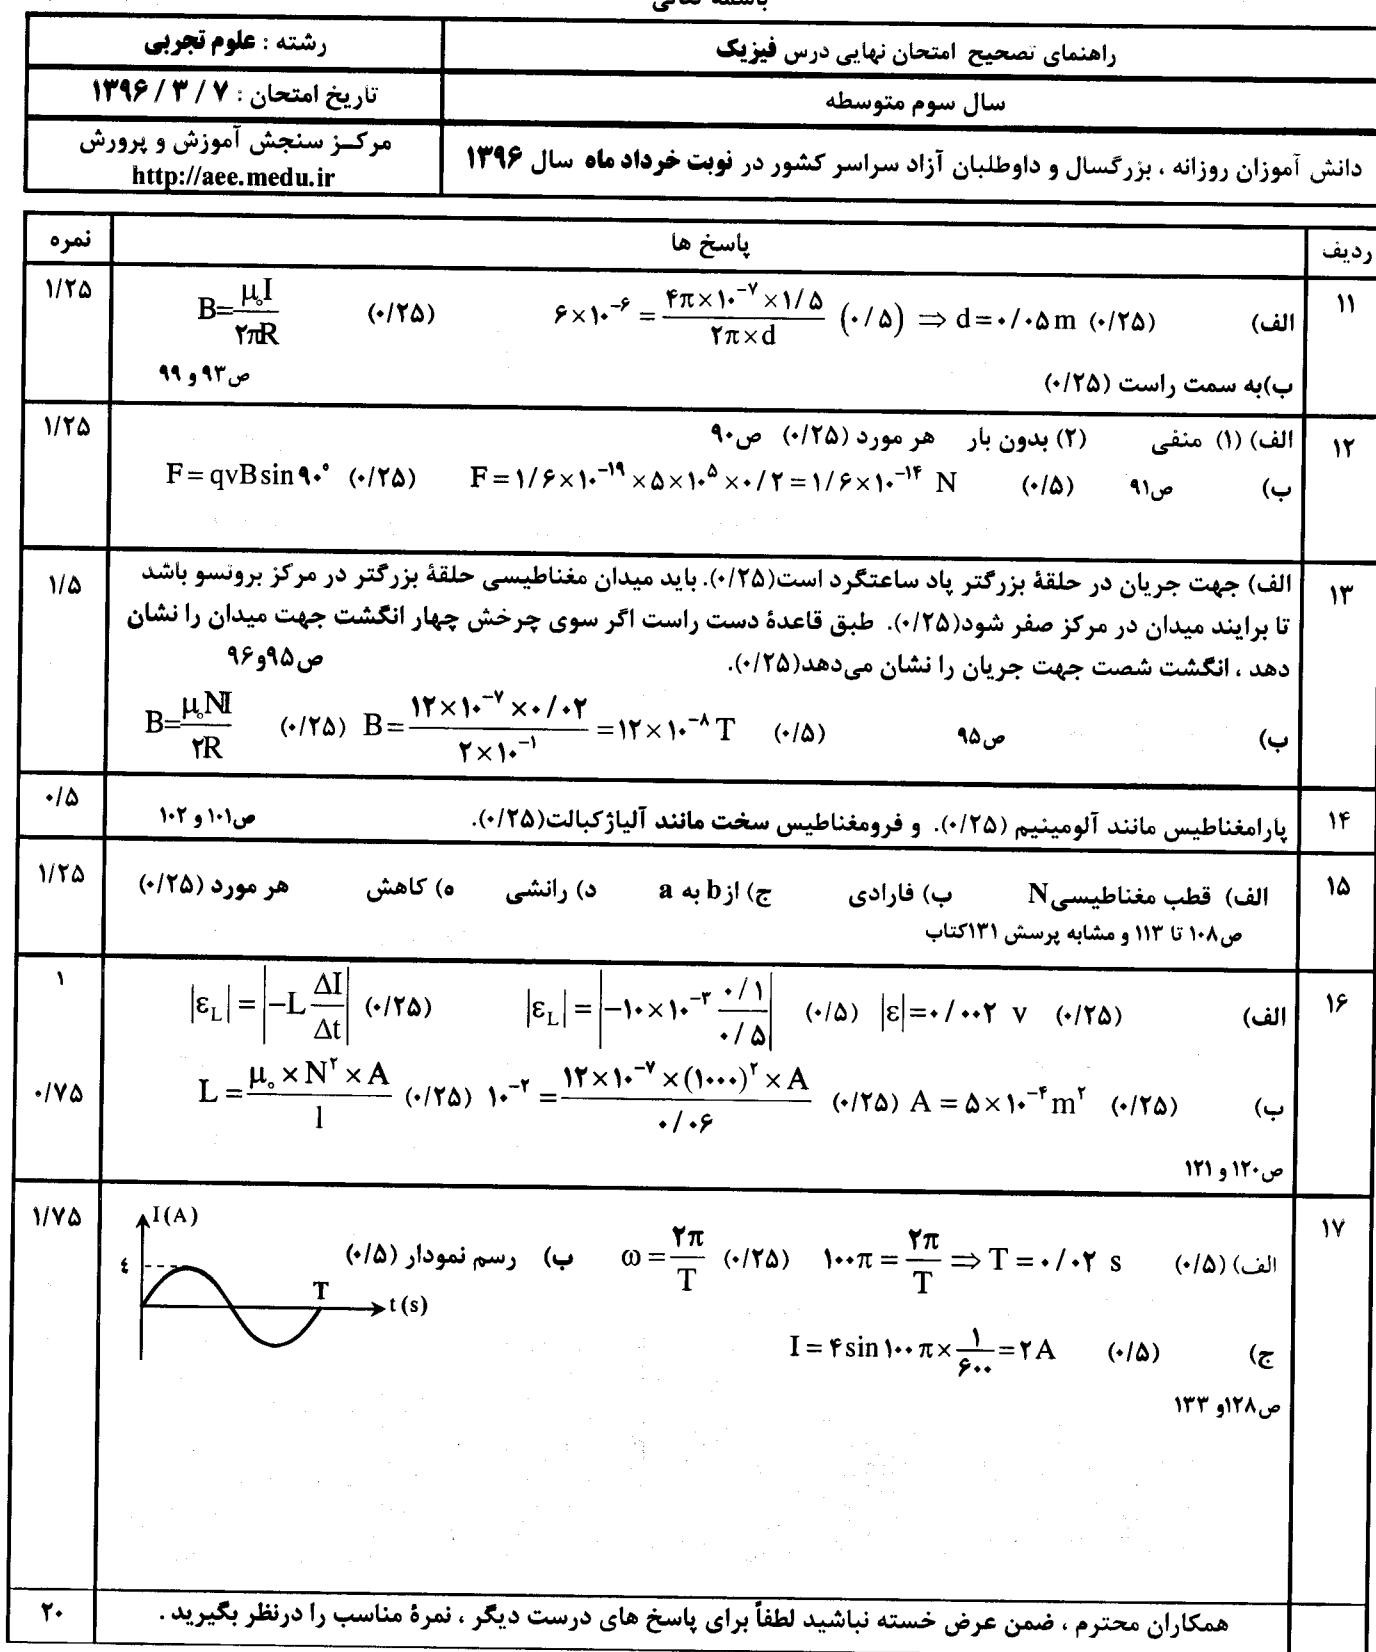 باسمه تعالی
راهنمای تصحیح امتحان نهایی درس فیزیک
رشته : علوم تجربی
سال سوم متوسطه
تاریخ امتحان : ۷ / ۳ / ۱۳۹۶
دانش آموزان روزانه ، بزرگسال و داوطلبان آزاد سراسر کشور در نوبت خرداد ماه سال ۱۳۹۶
مرکـز سنجش آموزش و پرورش
http://aee.medu.ir
ردیف پاسخ ها نمره
۱۱ الف) B=μ₀I/۲πR (۰/۲۵) ۶×۱۰⁻⁶ = ۴π×۱۰⁻⁷×۱/۵ / ۲π×d (۰/۵) ⇒ d=۰/۰۵ m (۰/۲۵) ۱/۲۵
ب)به سمت راست (۰/۲۵) ص۹۳ و ۹۹
۱۲ الف) (۱) منفی (۲) بدون بار هر مورد (۰/۲۵) ص۹۰ ۱/۲۵
ب) F=qvB sin ۹۰° (۰/۲۵) F=۱/۶×۱۰⁻¹⁹×۵×۱۰⁵×۰/۲=۱/۶×۱۰⁻¹⁴ N (۰/۵) ص۹۱
۱۳ الف) جهت جریان در حلقهٔ بزرگتر پاد ساعتگرد است(۰/۲۵). باید میدان مغناطیسی حلقهٔ بزرگتر در مرکز برونسو باشد ۱/۵
تا برایند میدان در مرکز صفر شود(۰/۲۵). طبق قاعدهٔ دست راست اگر سوی چرخش چهار انگشت جهت میدان را نشان
دهد ، انگشت شصت جهت جریان را نشان می‌دهد(۰/۲۵). ص۹۵و۹۶
ب) B=μ₀NI/۲R (۰/۲۵) B=۱۲×۱۰⁻⁷×۰/۰۲ / ۲×۱۰⁻¹ =۱۲×۱۰⁻⁸ T (۰/۵) ص۹۵
۱۴ پارامغناطیس مانند آلومینیم (۰/۲۵). و فرومغناطیس سخت مانند آلیاژکبالت(۰/۲۵). ص۱۰۱ و ۱۰۲ ۰/۵
۱۵ الف) قطب مغناطیسی N ب) فارادی ج) از b به a د) رانشی ه) کاهش هر مورد (۰/۲۵) ۱/۲۵
ص۱۰۸ تا ۱۱۳ و مشابه پرسش ۱۳۱کتاب
۱۶ الف) |ε_L|=|−L ΔI/Δt| (۰/۲۵) |ε_L|=|−۱۰×۱۰⁻³ ۰/۱ / ۰/۵| (۰/۵) |ε|=۰/۰۰۲ v (۰/۲۵) ۱
ب) L=μ₀×N²×A/l (۰/۲۵) ۱۰⁻²=۱۲×۱۰⁻⁷×(۱۰۰۰)²×A / ۰/۰۶ (۰/۲۵) A=۵×۱۰⁻⁴ m² (۰/۲۵) ۰/۷۵
ص۱۲۰ و ۱۲۱
۱۷ الف) (۰/۵) ω=۲π/T (۰/۲۵) ۱۰۰π=۲π/T ⇒ T=۰/۰۲ s ب) رسم نمودار (۰/۵) ۱/۷۵
I(A) ٤ T t(s)
ج) I=۴ sin ۱۰۰ π×۱/۶۰۰=۲ A (۰/۵)
ص۱۲۸و ۱۳۳
همکاران محترم ، ضمن عرض خسته نباشید لطفاً برای پاسخ های درست دیگر ، نمرهٔ مناسب را درنظر بگیرید . ۲۰